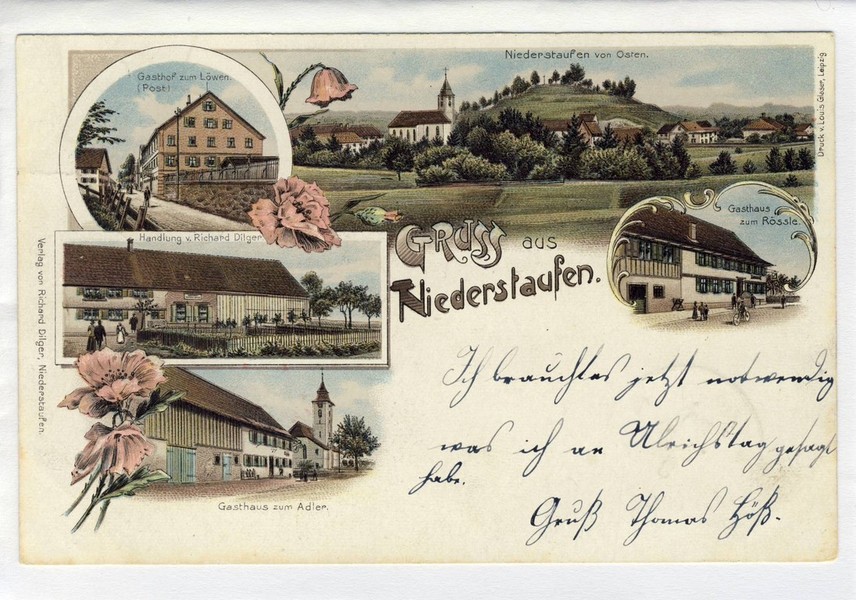 Gasthof zum Löwen.
(Post)
Niederstaufen von Osten.
Druck v. Louis Glaser, Leipzig.
Handlung v. Richard Dilger
Gruss aus
Niederstaufen.
Gasthaus
zum Rössle.
Verlag von Richard Dilger, Niederstaufen.
Gasthaus zum Adler.
Ich brauchtes jetzt notwendig
was ich an Ulrichstag gesagt
habe.
Gruß Thomas Höß.